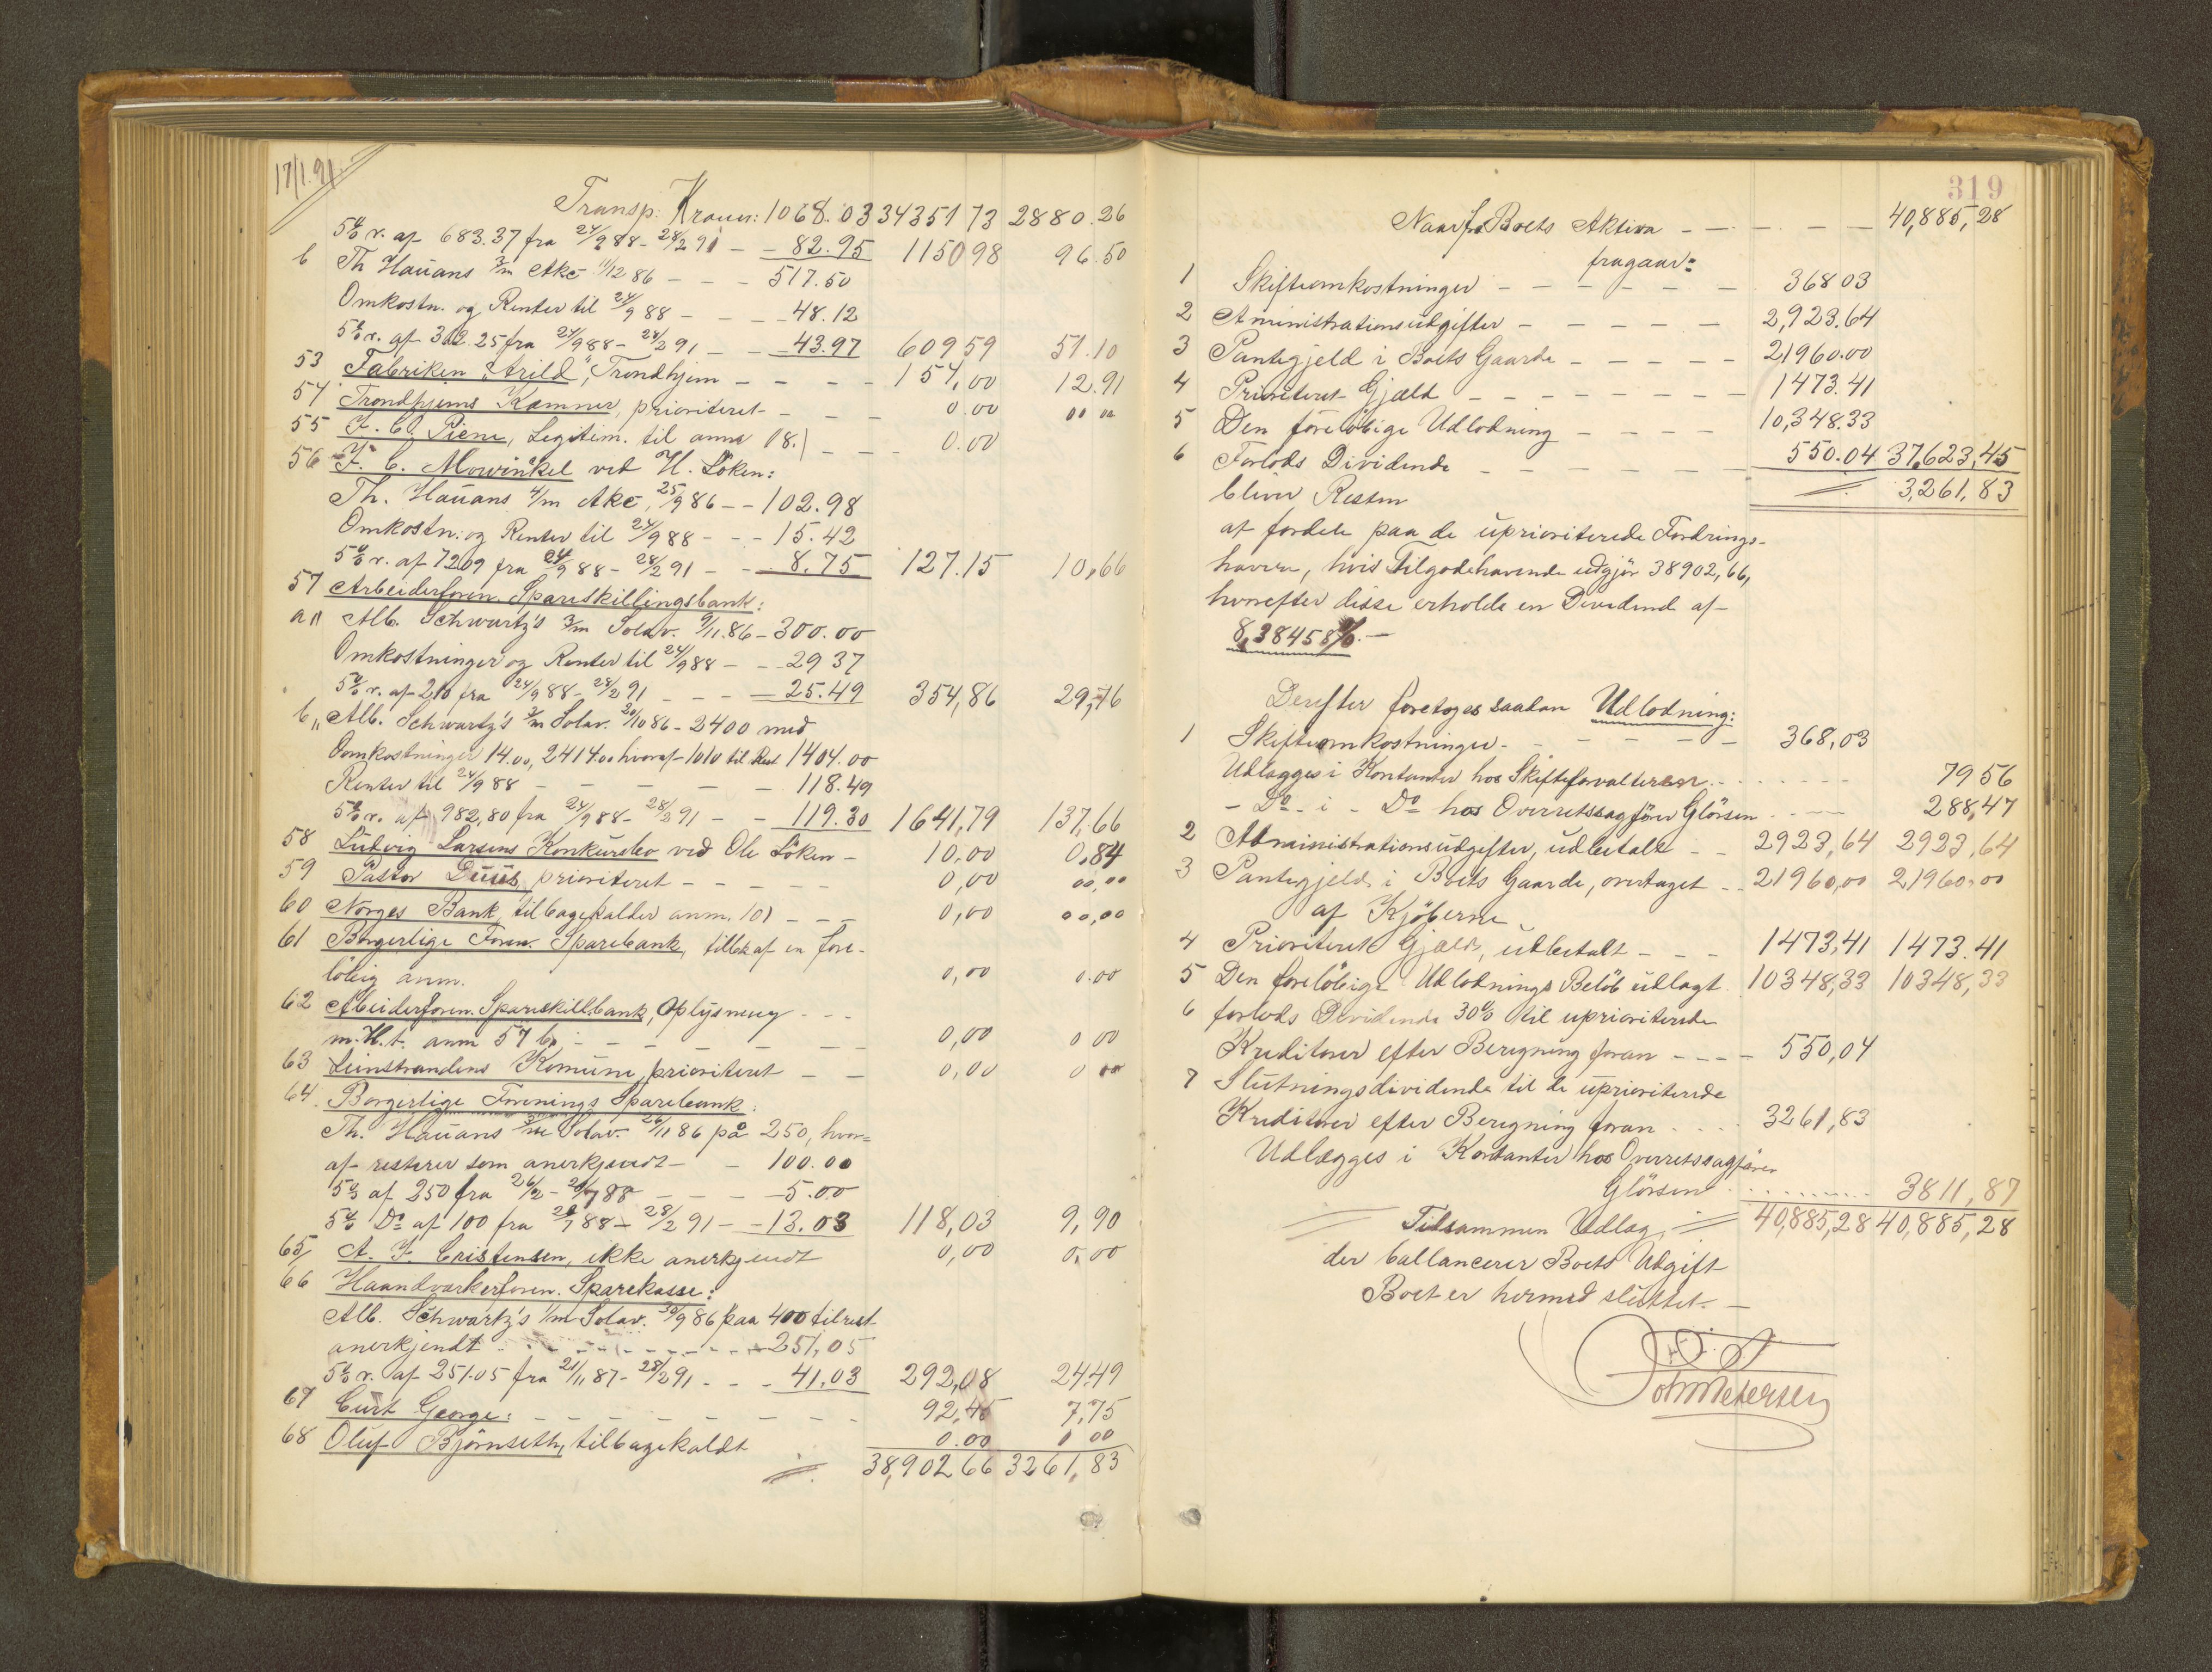 17/1.91.
Transp: Kroner: 1068.03 34351 73 2880.26
5% r. af 683.37 fra 24/9 88 - 28/2 91 - - 82.95 1150 98 96.50
b Th Hauans 3/m Akc 11/12 86 - - - 517.50
Omkostn. og Renter til 24/9 88 - - - 48.12
5% r. af 362.25 fra 24/9 88 - 28/2 91 - - 43.97 609 59 51.10
53 Fabriken "Arild", Trondhjem - - - - 154,00 12.91
54 Trondhjems Kæmner, prioriteret - - - 0.00 00 00
55 F. C. Piene, Legitim. til anm 18.) - - - 0.00
56 J. C. Mowinkel ved H. Löken:
Th. Hauans 4/m Akc, 25/9 86 - - 102.98
Omkostn: og Renter til 24/9 88 - - - 15.42
5% r. af 72.09 fra 24/9 88 - 28/2 91 - - 8.75 127.15 10,66
57 Arbeiderforen. Spareskillingsbank:
a " Alb. Schwartz's 3/m Solav. 9/11.86 - 300.00
Omkostninger og Renter til 24/9 88 - - 29 37
5% r. af 210 fra 24/9 88 - 28/2 91 - - - 25.49 354,86 29,76
b " Alb. Schwartz's 3/m Solav. 30/10 86 - 2400 med
Oomkostninger 14.00, 2414.00 hvoraf 1010 til Rest 1404.00
Renter til 24/9 88 - - - - - 118.49
5% r. af 982,80 fra 24/9 88 - 28/2 91 - - 119.30 1641,79 137,66
58 Ludvig Larsens Konkursbo ved Ole Löken - 10,00 0,84
59 Pastor Duus, prioriteret - - - - - 0,00 00,00
60 Norges Bank, tilbagekaldes anm. 101 - - - 0,00 00,00
61 Borgerlige Foren. Sparebank, tillæg af en fore-
löbig anm. 0,00 0.00
62 Abeiderforen. Spareskillbank, Oplysning - - -
m. H. t. anm 57 b - - - - - - 0,00 0 00
63 Leinstrandens Komune, prioriteret - - 0,00 0 00
64. Borgerlige Forenings Sparebank:
Th. Hauans 3/m Solav. 26/11 86 på 250, hvor=
af resterer som anerkjendt - - 100.00
5% af 250 fra 26/2 - 20/7 88 - - - 5.00
5% Do af 100 fra 20/7 88 - 28/2 91 - - 13.03 118,03 9,90
65, A. F. Cristensen, ikke anerkjendt 0,00 0,00
66 Haandværkerforen. Sparekasse:
Alb. Schwartz's 1/m Solav. 30/9 86 paa 400 til rest
anerkjendt - - - - - 251,05
5% r. af 251.05 fra 21/11 87 - 28/2 91 - - - 41,03 292,08 24.49
67 Curt George: - - - - - - - 92,45 7,75
68 Oluf Björnseth, tilbagekaldt 0.00 0 00
38,902 66 3261,83
319
Naar fra Boets Aktiva - - - - - 40,885,28
fragaar:
1 Skifteomkostninger - - - - - - 368 03
2 Aministrationsudgifter - - - - - 2,923.64
3 Pantegjeld i Boets Gaarde - - - - 21960.00
4 Prioriteret Gjæld - - - - - - - - 1473.41
5 Den foreløbige Udlodning - - - - 10,348.33
6 Forlods Dividende - - - - - 550.04 37,623,45
bliver Resten 3,261,83
at fordele paa de uprioriterede Fordrings-
havere, hvis Tilgodehavende udgjør 38902,66,
hvorefter disse erholde en Dividende af
8,38458%. -
Derefter foretages saadan Udlodning:
1 Skifteomkostninger - - - - - - 368,03
Udlægges i Kontanter hos Skifteforvalteren - - - - - 79 56
- Do - i - Do hos Overretssagfører Glörsen - - - 288,47
2 Administrationsudgifter, udbetalt - - 2923,64 2923,64
3 Pantegjeld i Boets Gaarde, overtaget - - 21960,00 21960,00
af Kjöberne
4 Prioriteret Gjæld, udbetalt - - - 1473,41 1473.41
5 Den foreløbige Udlodnings Beløb udlagt. 10348,33 10348,33
6 forlods Dividende 30% til uprioriterede
Kreditorer efter Beregning foran - - - - 550,04
7 Slutningsdividende til de uprioriterede
Kreditorer efter Beregning foran - - - - 3261,83
Udlægges i Kontanter hos Overretssagfører
Glörsen - - - - - 3811,87
Tilsammen Udlæg, 40,885,28 40,885,28
der ballancerer Boets Udgift
Boet er hermed sluttet. -